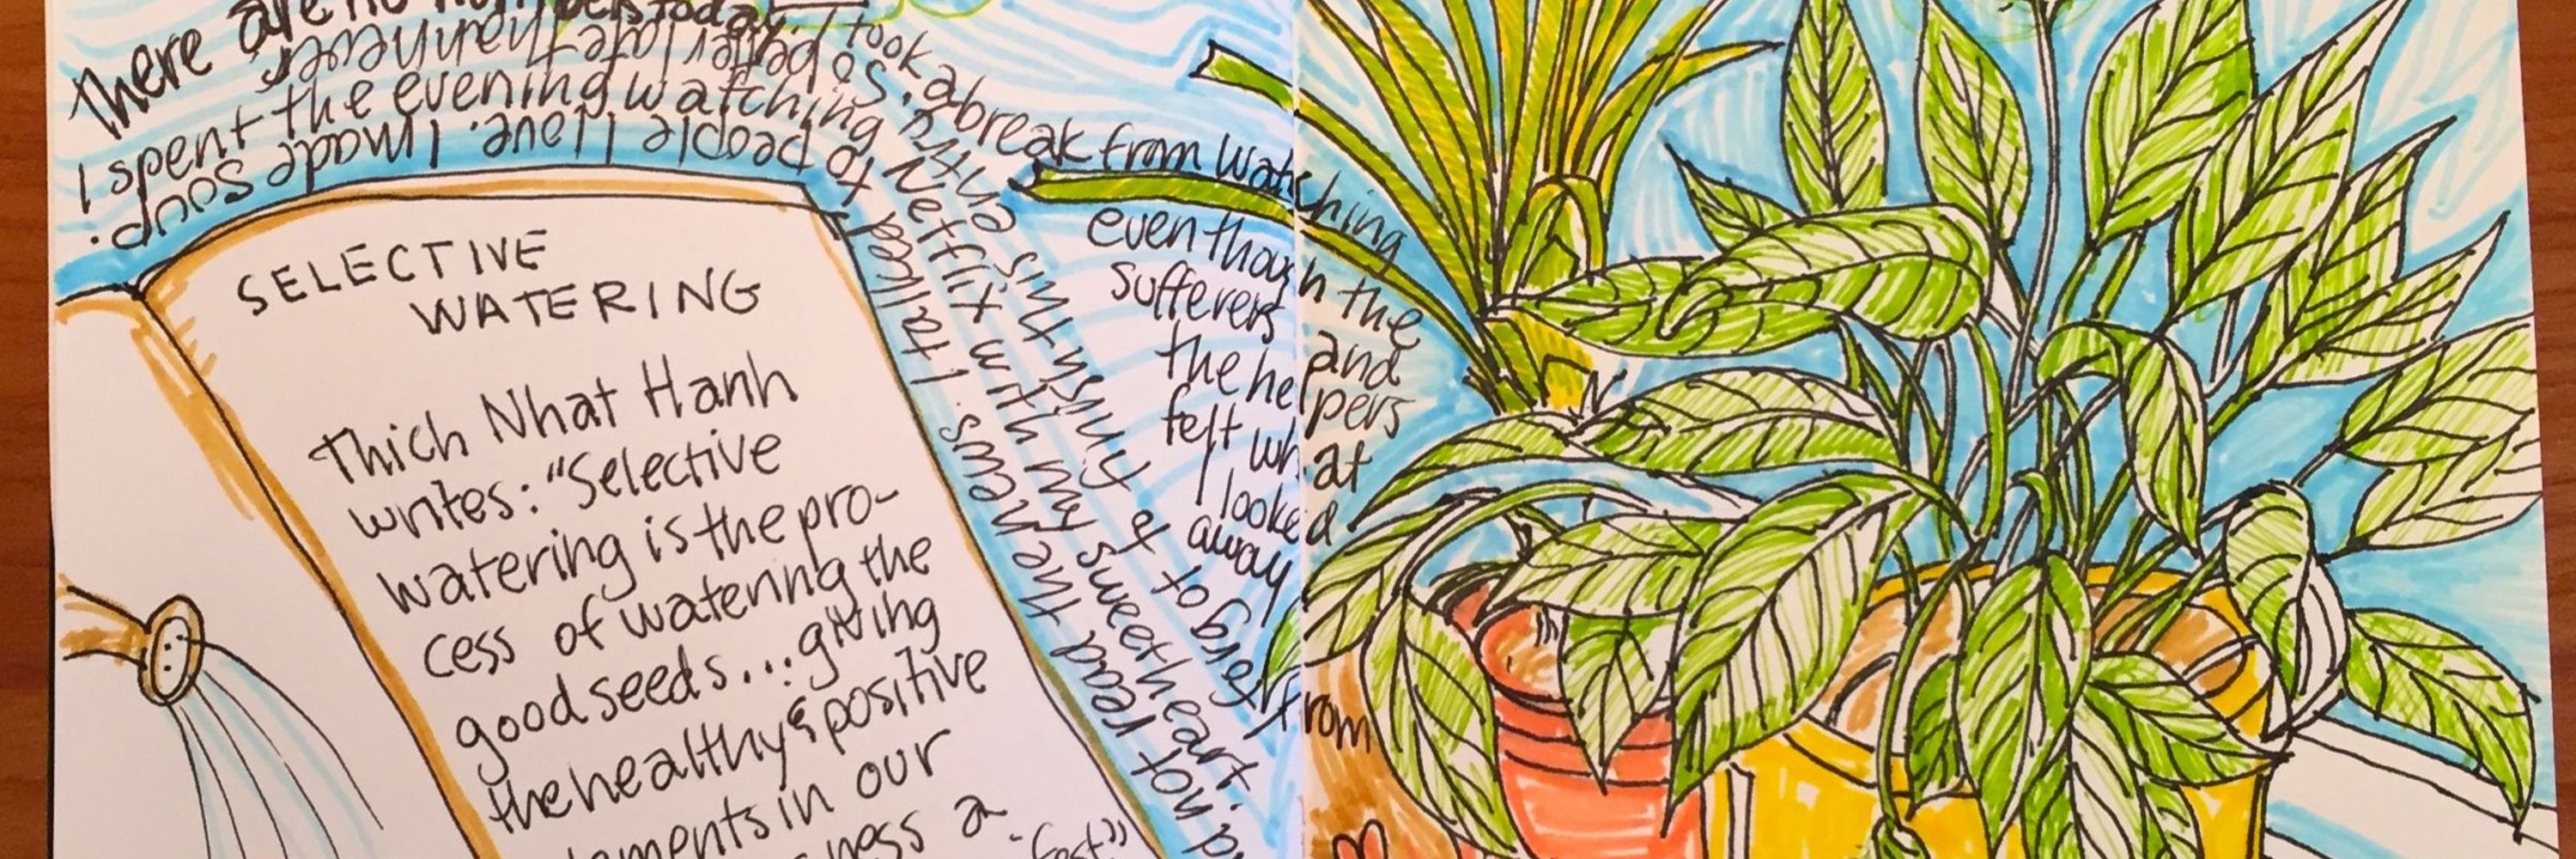 There are no numbers today. I took a break from watching
even though the
sufferers and
the helpers
felt what
I looked
away
from
SELECTIVE
WATERING
Thich Nhat Hanh
writes: "Selective
watering is the pro-
cess of watering the
good seeds... giving
the healthy & positive
ements in our
ness a
fast"
I spent the evening watching Netflix with my sweetheart.
I did not read the news. I talked to people I love. I made soup.
so better late than never
finish this entry,